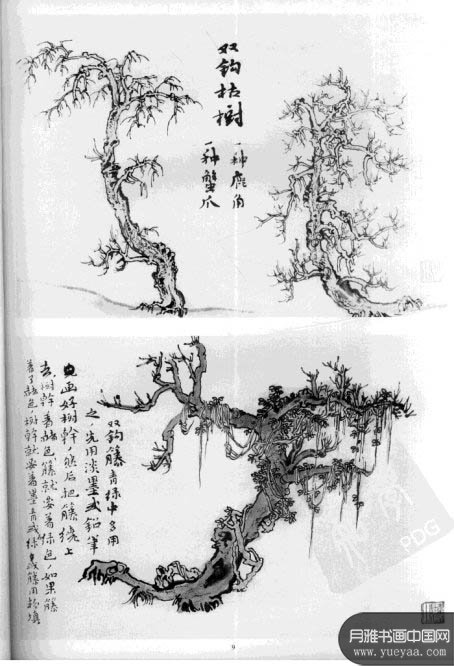 双钩枯樹
一种鹿角
一种蟹爪
双钩藤青绿中多用
之,先用淡墨或铅笔
画好樹幹,然后把藤绕上
去樹幹着赭色藤就要着绿色,如果藤
着了赭色,樹幹就要着墨青或绿 或藤用粉填
PDG
9
月雅书画中国网
www.yueyaa.com